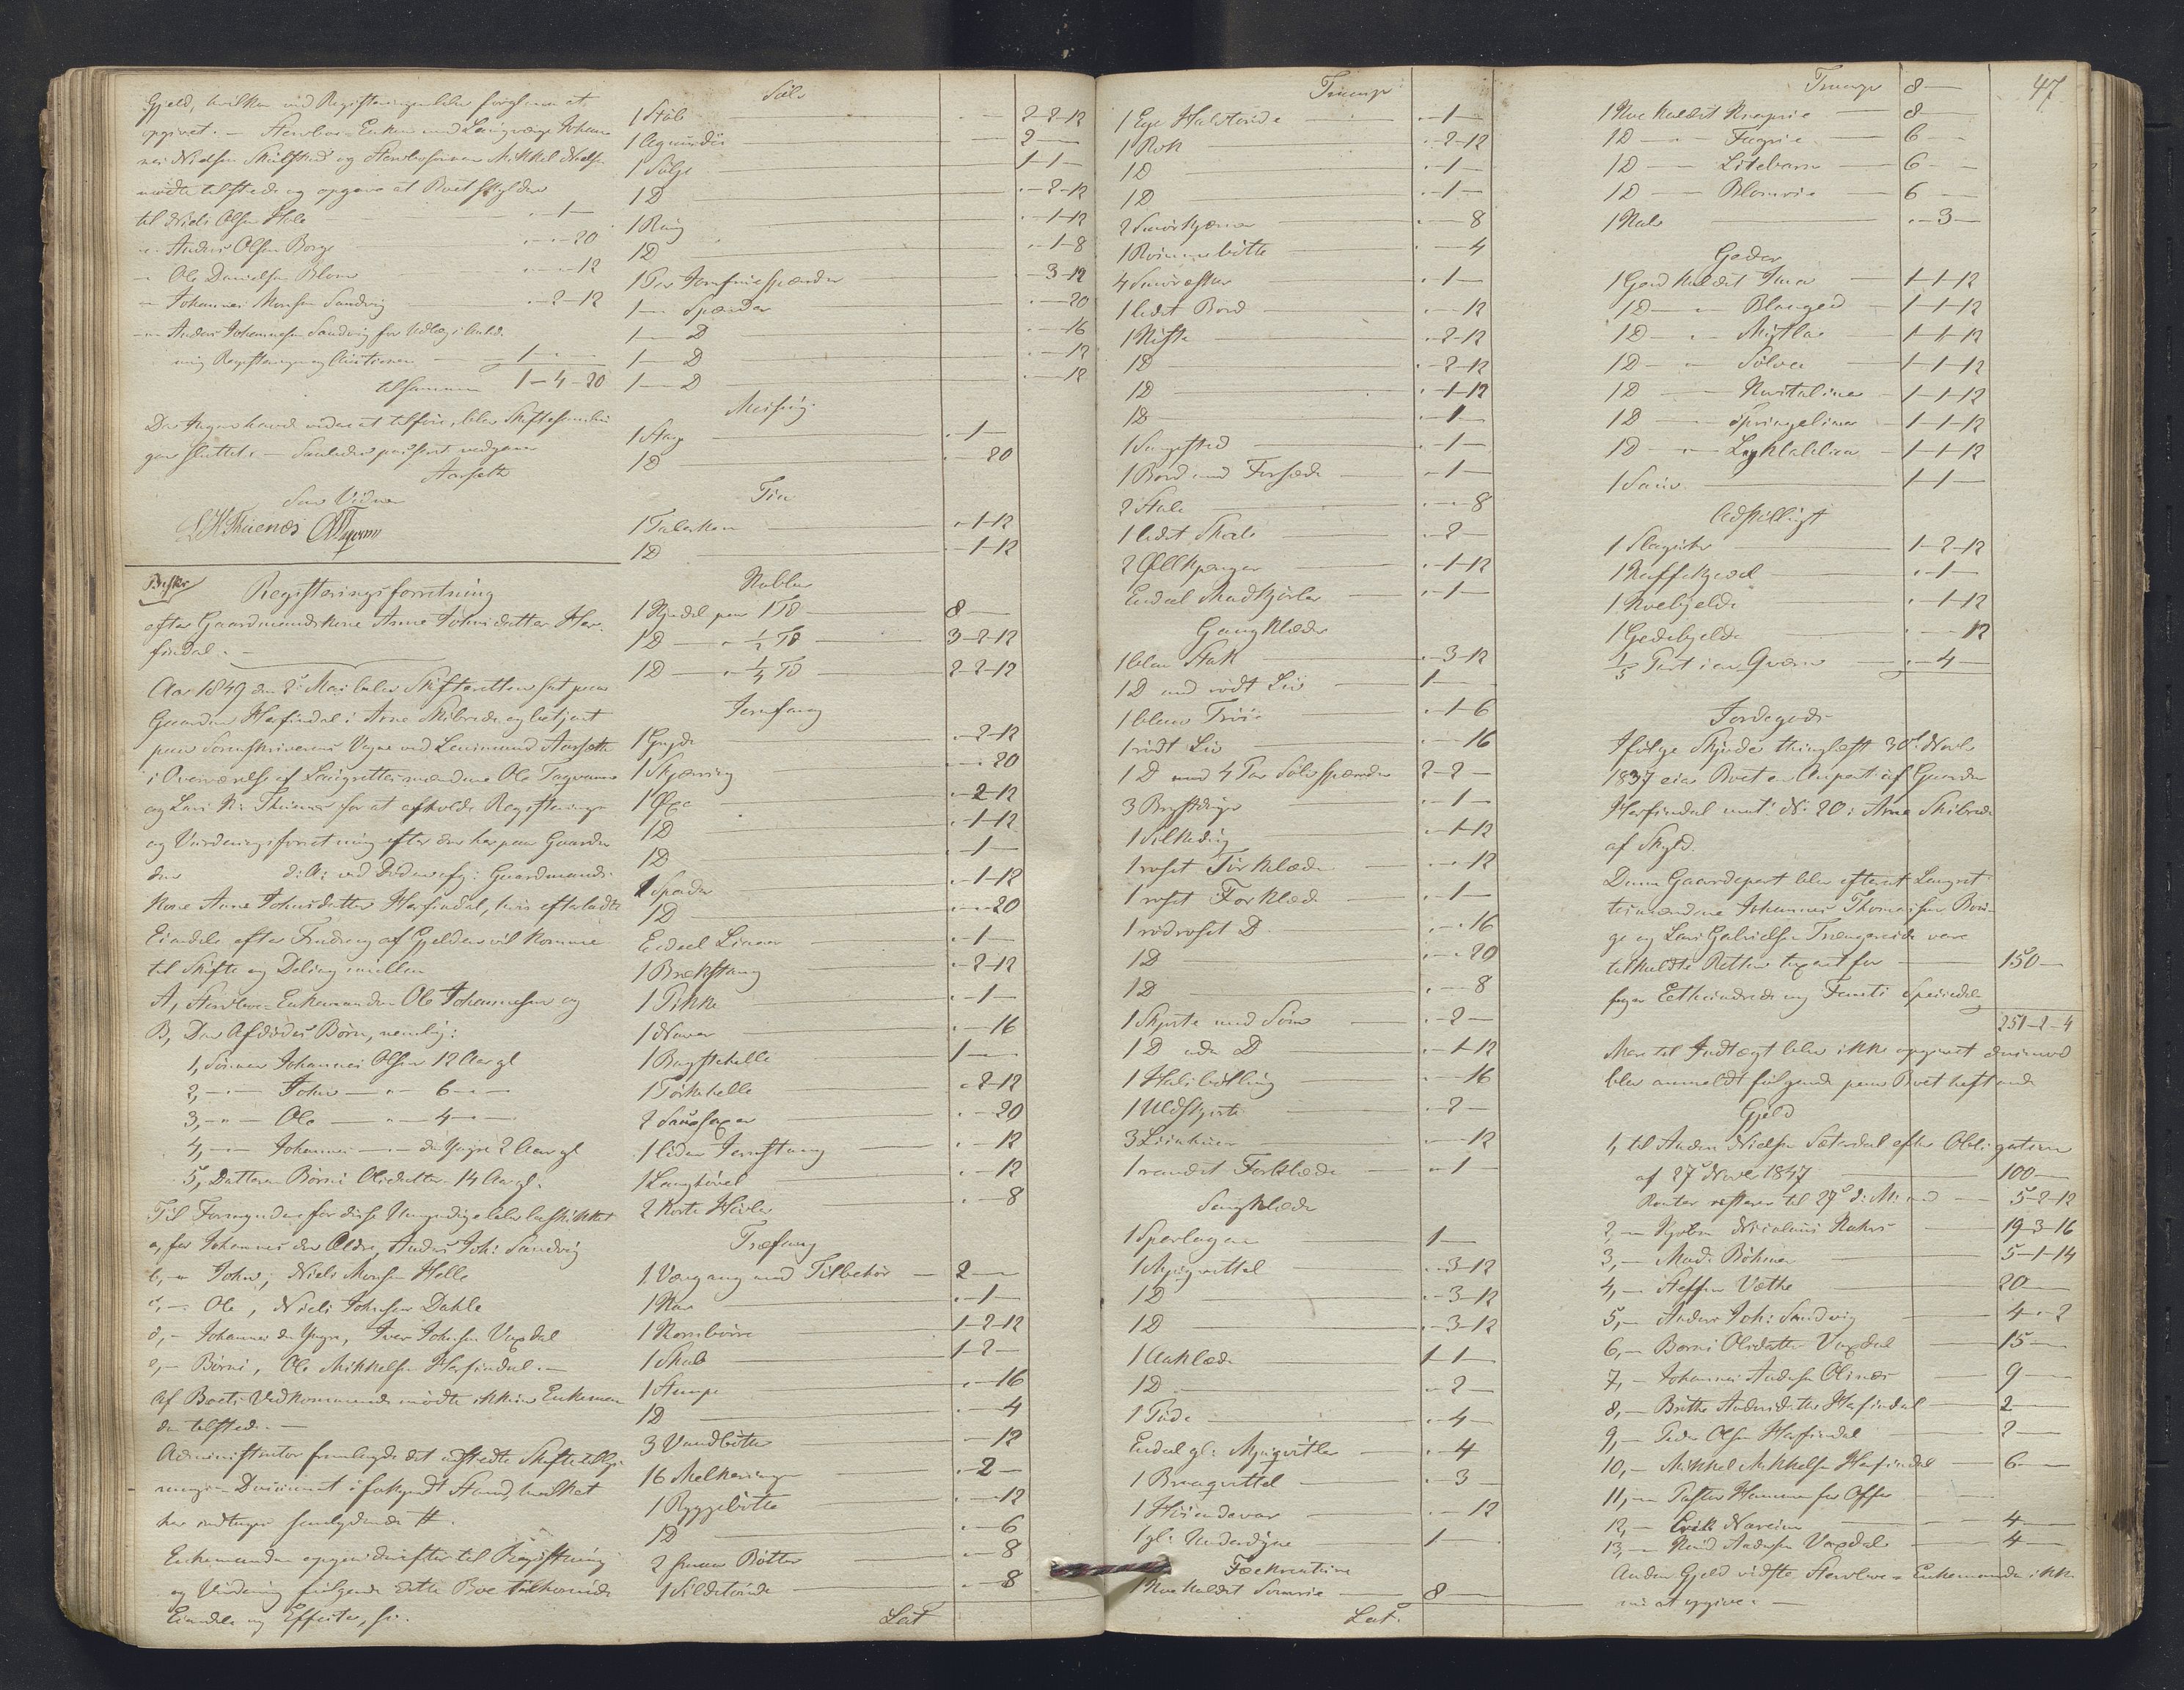 Gjeld, hvilken ved Registeringen blev forglemt at
opgivet. – Stervboe Enken med Laugværge Johan-
nes Nielsen Skulstad og Stervbosønnen Mikkel Nielsen
mødte tilstede og opgave at Boet skylder
til Niels Olsen Hole . – 1 –
– Anders Olsen Borge . – . – 20
– Ole Danielsen Blom . – . – 12
– Johannes Monsen Sandvig . – 2 – 12
– Anders Johannesen Sandvig for Udlæg i Anled-
ning Registeringen og Auctionen 1 – . – .
tilsammen 1 – 4 – 20
Da Ingen havde videre at tilføie, blev Skiftesamlin-
gen sluttet. – Saaledes passeret vedgaaes
Aarseth
Som Vidner
L K Thuenæs
Beskr
Registeringsforretning
efter Gaardmandskone Anne Johnsdatter Her-
findal. –
Aar 1849 den 2 Mai blev Skifteretten sat paa
Gaarden Herfindal i Arne Skibrede og betjent
paa Sorenskriverens Vegne ved Leiermand Aarseth
i Overværelse af Laugrettesmændene Ole
og Lars K. Thuenæs for at afholde Registerings-
og Vurderingsforretning efter den her paa Gaarden
den d: A: ved Døden afg: Gaardmands-
kone Anne Johnsdatter Herfindal, hvis efterladte
Eiendele efter Fradrag af Gjelden vil komme
til Skifte og Deling imellem
A, Stervboe Enkemanden Ole Johannesen og
B, Den Afdødes Børn, nemlig:
1, Sønnen Johannes Olsen 12 Aar gl
2, – – John – „ – 6 – „ –
3, – „ – Ole – „ – 4 – „ –
4, – – Johannes – – den Yngre 2 Aar gl
5, Datteren Børni Olsdatter 14 Aar gl.
Til Formyndere for disse Umyndige blev beskikket
a, for Johannes den Ældre, Anders Joh: Sandvig
b, – John, Niels Monsen Helle
c, – Ole, Niels Johnsen Dahle
d, – Johannes den Yngre, Iver Johnsen Vaxdal
e, – Børni, Ole Mikkelsen Herfindal. –
Af Boets Vedkommende mødte ikkun Enkeman-
den tilstede. –
Administrator fremlagde det udstedte Skiftetillys-
nings Document i forkyndt Stand, hvilket
her indtages saalydende #.
Enkemanden opgav derefter til Registering
og Vurdering følgende dette Boe tilhørende
Eiendele og Effecter, s:.
Sølv
1 Støb 2-2-12
1 2 –
1 Sølje 1-1 –
1 D . – 2-12
1 Ring . – 1-12
1 D . – 1-8
1 Par . – 3-12
1 – Spænder . – . – 20
1 – D . – . – 16
1 – D . – . – 12
1 – D . – . – 12
Messing
1 Stage . – 1 –
1 D . – . – 20
Tin
1 Talerken . – 1-12
1 D . – 1-12
Kobber
1 Kjedel paa 1 Td 8 –
1 D – „ ½ Td 3-2-12
1 D – „ ¼ Td 2-2-12
Jernfang
1 Gryde . – 2-12
1 Skjæring . – . – 20
1 Øxe . – 2-12
1 D . – 1-12
1 D . – 1 –
1 Spade . – 1-12
1 D . – . – 20
Endeel Linner . – 1 –
1 Brækstang . – 2-12
1 Pikke . – 1 –
1 Naver . – . – 16
1 Bagstehelle 1 –
1 Tørkehelle . – 2-12
2 Sausaxer . – . – 20
1 liden Jernstang . – . – 12
1 Langhøvel . – . – 12
2 korte Høvler . – . – 8
Træfang
1 Vævgang med Tilbehør 2 –
1 Kar . – 1 –
1 Kornbøre 1-2-12
1 Skab 1-2 –
1 Stampe . – . – 16
1 D . – . – 4
3 Vandbøtter . – . – 12
16 Melkeringe . – 2 –
1 Byggebøtte . – . – 12
1 D . – . – 6
2 smaae Bøtter . – . – 8
1 Sildetønde . – . – 8
Lat
Transp:
1 Ege Halvtønde . – 1 –
1 Rok . – 2-12
1 D . – 1 –
1 D . – 1 –
2 Smørkjerner . – . – 8
1 Rømmebøtte . – . – 4
4 Smørasker . – 1 –
1 lidet Bord . – . – 12
1 Kiste . – 2-12
1 D . – 2-12
1 D . – 1-12
1 D . – 1 –
1 Sengested . – 1 –
1 Bord med Forsæde . – 1 –
2 Stole . – . – 8
1 lidet Skab . – 2 –
2 Ølkjænger . – 1-12
Endeel Madkjørler . – 1 –
Gangklæder
1 blaa Stak . – 3-12
1 D med rødt Liv 1 –
1 blaae Trøie . – 1-6
1 rødt Liv . – . – 16
1 D med 4 Par Sølvspænder 2-2 –
3 Brystduge . – 1 –
1 Silkedug . – 1-12
1 roset Tørklæde . – . – 12
1 roset Forklæde . – 1 –
1 rødroset D . – . – 16
1 D . – . – 20
1 D . – . – 8
1 Skjorte med Søm . – 2 –
1 D uden D . – 1-12
1 . – . – 16
1 Uldskjorte . – 2 –
3 Liinhuer . – . – 12
1 randet Forklæde . – 1 –
Sengklæder
1 Sperlagen 1 –
1 Myggvittel . – 3-12
1 D . – 3-12
1 D . – 3-12
1 Aaklæde 1-1 –
1 D . – 2 –
1 Pude . – 4 –
Endeel gl: . – . – 4
1 . – . – 3
1 Høiendevar . – . – 12
1 gl: Underdyne 1 –
Fækreature
1 Koe kaldet Somrie 8 –
Lat.
47
Transp 8 –
1 Koe kaldet Knaprie 8 –
1 D – „ – Fagrie 6 –
1 D – „ – Litebarn 6 –
1 D – „ – Blomrie 6 –
1 Kalv . – 3 –
Geder
1 Geed kaldet 1-1-12
1 D – „ – Blaageed 1-1-12
1 D – „ – 1-1-12
1 D – „ – Sølvei 1-1-12
1 D – „ – 1-1-12
1 D – „ – 1-1-12
1 D – „ – 1-1-12
1 Sau 1-1 –
Adskilligt
1 1-2-12
1 Kaffekjedel . – 1 –
1 Koebjelde . – 1-12
1 Gedebjelde . – . – 12
1/3 Part i en Qværn . – 4 –
Jordegods
Ifølge Skjøde thinglæst 30 Novbr
1837 eier Boet en Anpart af Gaarden
Herfindal mat: No: 20 i Arne Skibrede
af Skyld.
Denne Gaardepart blev efterat Laugret-
tesmændene Johannes Thomassen Bor-
ge og Lars Gabrielsen Trængereide vare
tilkaldte Retten taxeret for 150 –
siger Etthundrede og Femti Speciedaler
251-2-4
Mere til Indtægt blev ikke opgivet derimod
blev anmeldt følgende paa Boet heftende
Gjeld
1, til Anders Nielsen Sæterdal efter Obligation
af 27 Novbr 1847 100 –
Renter resterer til 27 d: M: med 5-2-12
2, – Kjøbm: Nicolaus Kahrs 19-3-16
3, – Mad: Bøhmer 5-1-14
4, – Steffen Væthe 20 –
5, – Anders Joh: Sandvig 4 – . – 2
6, – Børni Olsdatter Vaxdal 15 –
7, – Johannes Andersen Olsnæs 9 –
8, – Brithe Andersdatter Herfindal 2 –
9, – Peder Olsen Herfindal 2 –
10, – Mikkel Mikkelsen Herfindal 6 –
11, – Pastor Hammer for Offer
12, – Erik Nareim 4 –
13, – Knud Andersen Vaxdal 4 –
Anden Gjeld vidste Stervboe Enkemanden ikke
nu at opgive. –